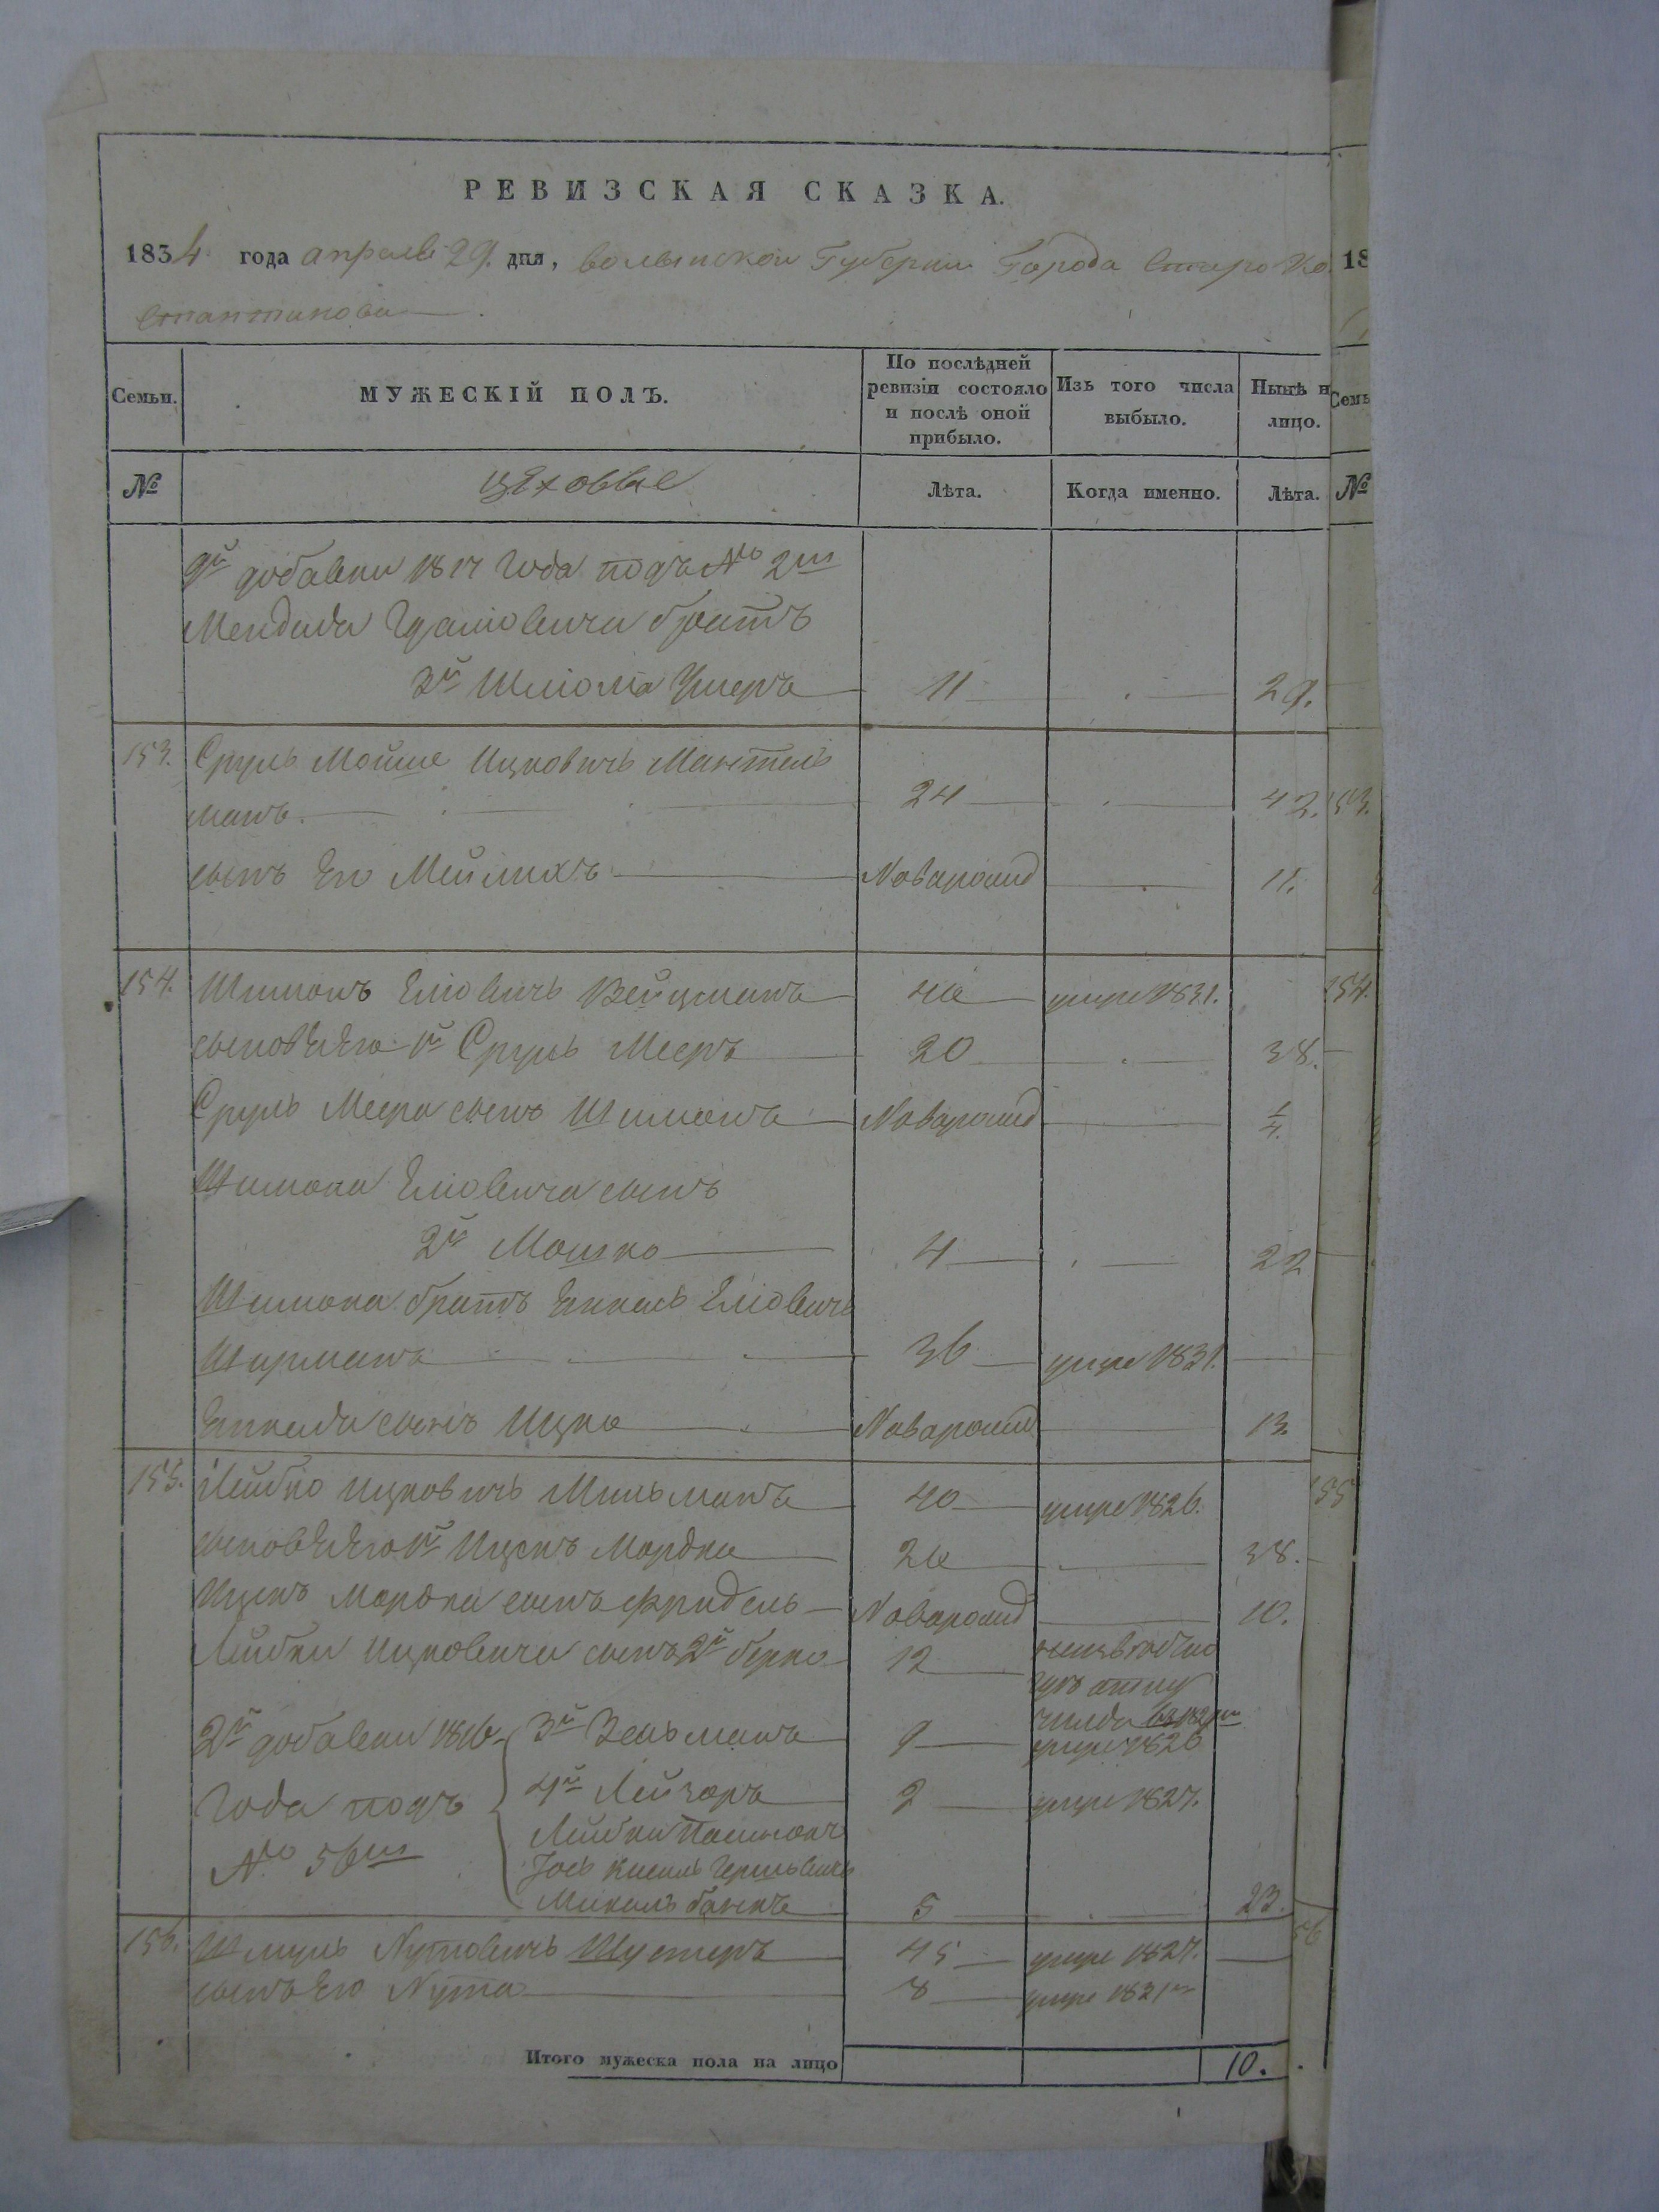 РЕВИЗСКАЯ СКАЗКА.
1834 года апреля 29. дня, Волынской Губернии Города Старо Ко
стантинова
Семьи.
МУЖЕСКІЙ ПОЛЪ.
По послѣдней ревизіи состояло и послѣ оной прибыло.
Изъ того числа выбыло.
Нынѣ н лицо.
№
цѣховые
Лѣта.
Когда именно.
Лѣта.
добавки 1817 Года подъ № 2м
Менделя братъ
3й Шліома Ушеръ 11 29.
153. Сруль Мойше Ицковичъ Мантель
манъ. 24 42.
сынъ Его Мейлихъ Новарожд 11.
154. Шимонъ Еліовичъ Вейцманъ умре 1831.
сыновѣ Его 1й Сруль Мееръ 20 38.
Сруль Меера сынъ Шимонъ Новарожд 1/4.
Шимона Еліовича сынъ
2й Мошко 4 22
Шимона братъ Янкель Еліовичъ
Ширманъ 36 умре 1831.
Янкеля сынъ Ицко Новарожд 13
155. Лейбко Ицковичъ Мильманъ 40 умре 1826.
сыновѣ Его 1й Ицикъ Мордко 20 38.
Ицикъ Мордки сынъ Фридель Новарожд 10.
Лейбки Ицковича сынъ 2й Берко 12
2й добавки 1816 3й Зельманъ 9 умре 1826
Года подъ 4й Лейзоръ 2 умре 1827.
№ 56м Лейбки
Іось Кисиль Гершковичъ
5 23.
156. Шмуль Нутовичъ Шустеръ 45 умре 1827.
сынъ Его Нута 8 умре 1821м
Итого мужеска пола на лицо 10.
18
Семь
№
153.
154.
155
56